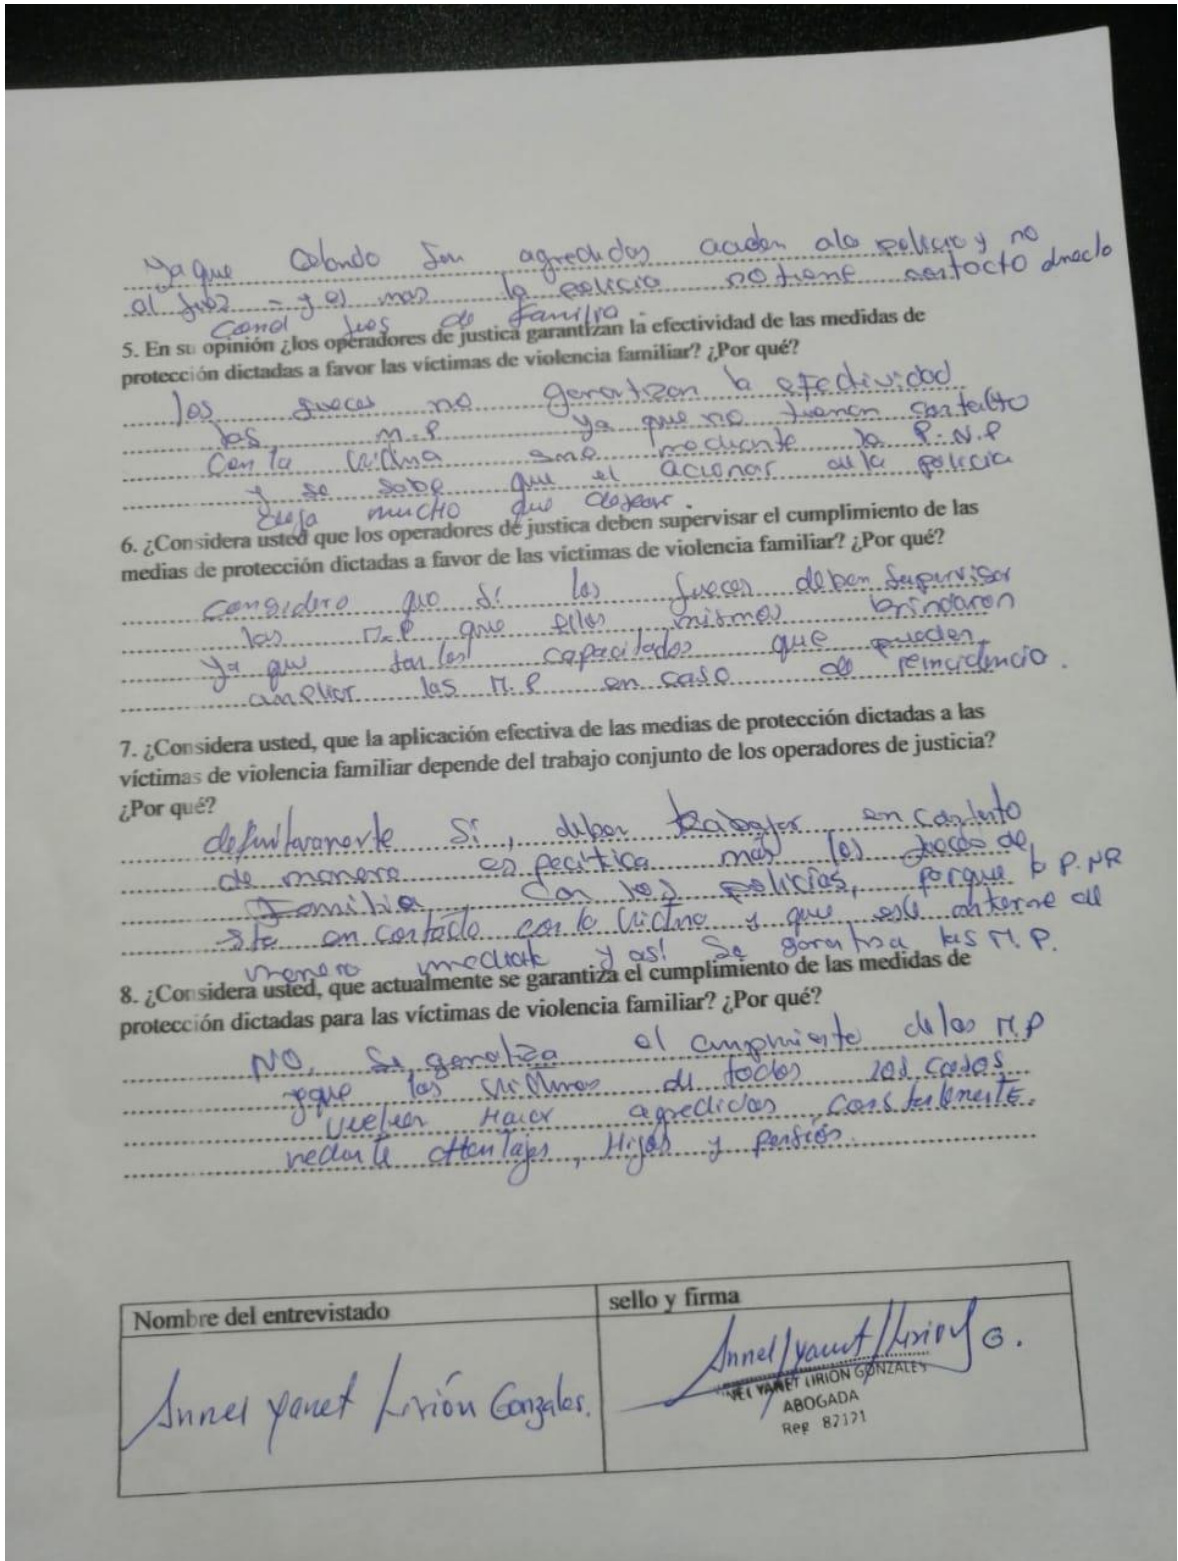 Ya que cuando son agredidas acuden a la policia y no
al juez - y es mas la policia no tiene contacto directo
con el jues de familia.
5. En su opinión ¿los operadores de justica garantizan la efectividad de las medidas de
protección dictadas a favor las víctimas de violencia familiar? ¿Por qué?
los jueces no garatizan la efectividad
las M.P ya que no tienen contacto
Con la victima sino mediante la P.N.P
y se sabe que el acionar de la policia
deja mucho que desear.
6. ¿Considera usted que los operadores de justica deben supervisar el cumplimiento de las
medias de protección dictadas a favor de las víctimas de violencia familiar? ¿Por qué?
Considero que sí los jueces deben supervisar
las M.P que ellos mismos brindaron
ya que son los capacitados que pueden
ampliar las M.P en caso de reincidencia.
7. ¿Considera usted, que la aplicación efectiva de las medias de protección dictadas a las
víctimas de violencia familiar depende del trabajo conjunto de los operadores de justicia?
¿Por qué?
Si, deben trabajar en conjunto
de manera especifica mas los jueces de
Familia con los policías, porque la
en contacto con la victima y que este de
manera inmediata y asi se garantiza las M.P.
8. ¿Considera usted, que actualmente se garantiza el cumplimiento de las medidas de
protección dictadas para las víctimas de violencia familiar? ¿Por qué?
NO, se garatiza el cumplimiento de las M.P
las victimas de todos los casos
vuelven agredidas
Hijos y pensión.
Nombre del entrevistado
sello y firma
Annel Yanet Lirión Gonzales.
Annel Yanet Lirión G.
YANET LIRION GONZALES
ABOGADA
Reg 82121